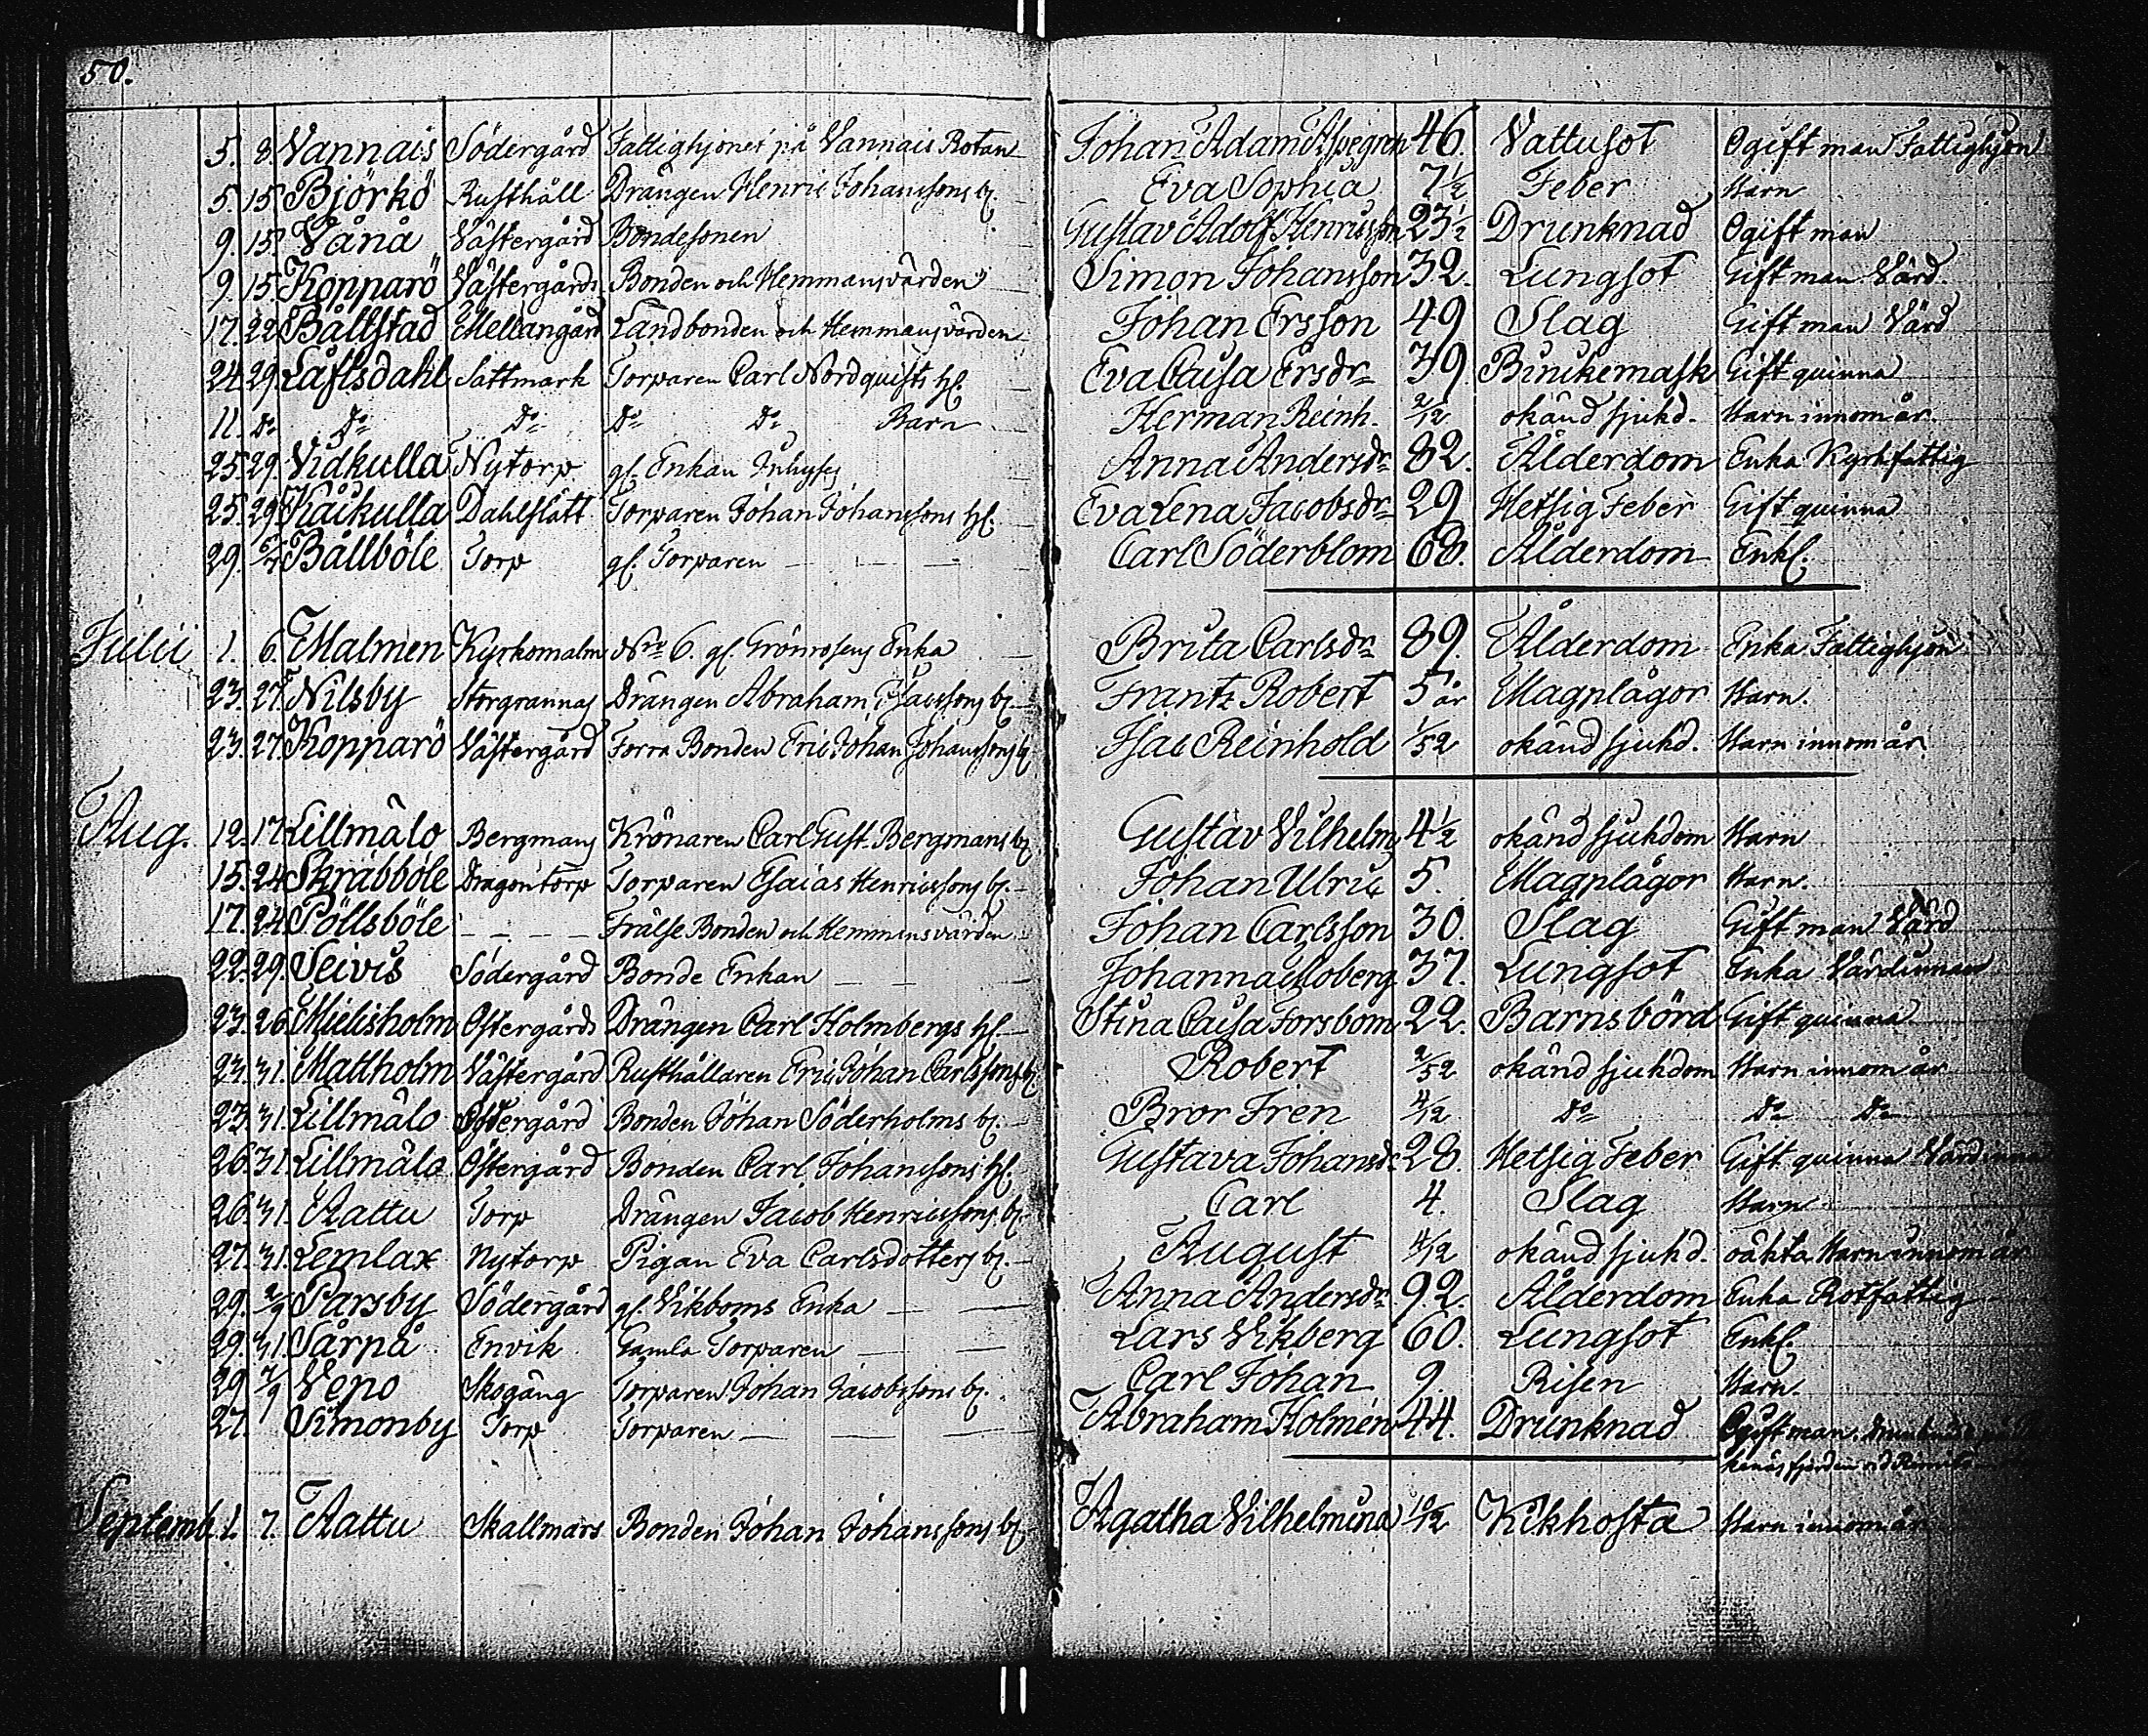 50.
5. 8. Vannais Södergård Fattighjonet på Vannais Rotan Johan Adam Aspegren 46. Vattusot Ogift man Fattighjon
5. 15. Björkö Rusthåll Drängen Henric Johanssons b. Eva Sophia 7½ Feber Barn
9. 15. Vånå Västergård Bondesonen Gustav Adolf Henricsson 23½ Drunknad Ogift man
9. 15. Kopparö Västergårds Bonden och Hemmansvärden Simon Johansson 32. Lungsot Gift man Värd.
17. 22. Bållstad Mellangård Landbonden och Hemmansvärden Johan Ersson 49 Slag Gift man Värd
24. 29. Låftsdahl Sattmark Torparen Carl Nordquists h. Eva Caisa Ersdr 39. Binikemask Gift quinna
11. Do Do Do Do Do Barn Herman Reinh. 2/12 okänd sjukd. Barn innom år.
25. 29. Vidkulla Nytorp gl. Enkan Inhyses Anna Andersdr 82. Ålderdom Enka Kyrkfattig
25. 29. Kåikulla Dahlslätt Torparen Johan Johanssons h. Eva Lena Jacobsdr 29 Hetsig Feber Gift quinna
29. 6/7 Bållböle Torp gl. Torparen Carl Söderblom 68. Ålderdom Enkl.
Julii 1. 6. Malmen Kyrkomalm No 6. gl. Grönrosens Enka Brita Carlsdr 89. Ålderdom Enka Fattighjon
23. 27. Nilsby Storgrannas Drängen Abraham Isacssons b. Frantz Robert 5 år Magplågor Barn.
23. 27. Kopparö Västergård Förra Bonden Eric Johan Johanssons b. Isac Reinhold 1/52 okänd sjukd. Barn innom år
Aug. 12. 17. Lillmälo Bergmans Krönaren Carl Gust. Bergmans b. Gustav Vilhelm 4½ okänd sjukdom Barn
15. 24. Skräbböle Dragontorp Torparen Esaias Henricssons b. Johan Ulric 5. Magplågor Barn.
17. 24. Pöllsböle Frälse Bonden och Hemmansvärden Johan Carlsson 30. Slag Gift man Värd
22. 29. Seivis Södergård Bonde Enkan Johanna Moberg 37. Lungsot Enka Värdinnan
23. 26. Mielisholm Östergårds Drängen Carl Holmbergs h. Stina Caisa Forsbom 22. Barnsbörd Gift quinna
23. 31. Mattholm Västergård Rusthållaren Eric Johan Carlssons b. Robert 2/52 okänd sjukdom Barn innom år
23. 31. Lillmälo Östergård Bonden Johan Söderholms b. Bror Fren 4/12 Do Do Do
26. 31. Lillmälo Östergård Bonden Carl Johanssons h. Gustava Johansdr 28. Hetsig Feber Gift quinna Värdinna
26. 31. Attu Torp Drängen Jacob Henricssons b. Carl 4. Slag Barn
27. 31. Lemlax Nytorp Pigan Eva Carlsdotters b. August 4/12 okänd sjukd. oäkta Barn innom år
29. 2/9 Parsby Södergård gl. Vikboms Enka Anna Andersdr 92. Ålderdom Enka Rotfattig
29. 31. Sårpå Envik Gamla Torparen Lars Vikberg 60. Lungsot Enkl.
29 7/9 Vepo Skogäng Torparen Johan Jacobssons b. Carl Johan 9. Risen Barn.
27. Simonby Torp Torparen Abraham Holmén 44. Drunknad Ogift man.
Septemb. 1. 7. Attu Skallmars Bonden Johan Johanssons b. Agatha Vilhelmina 10/12 Kikhosta Barn innom år